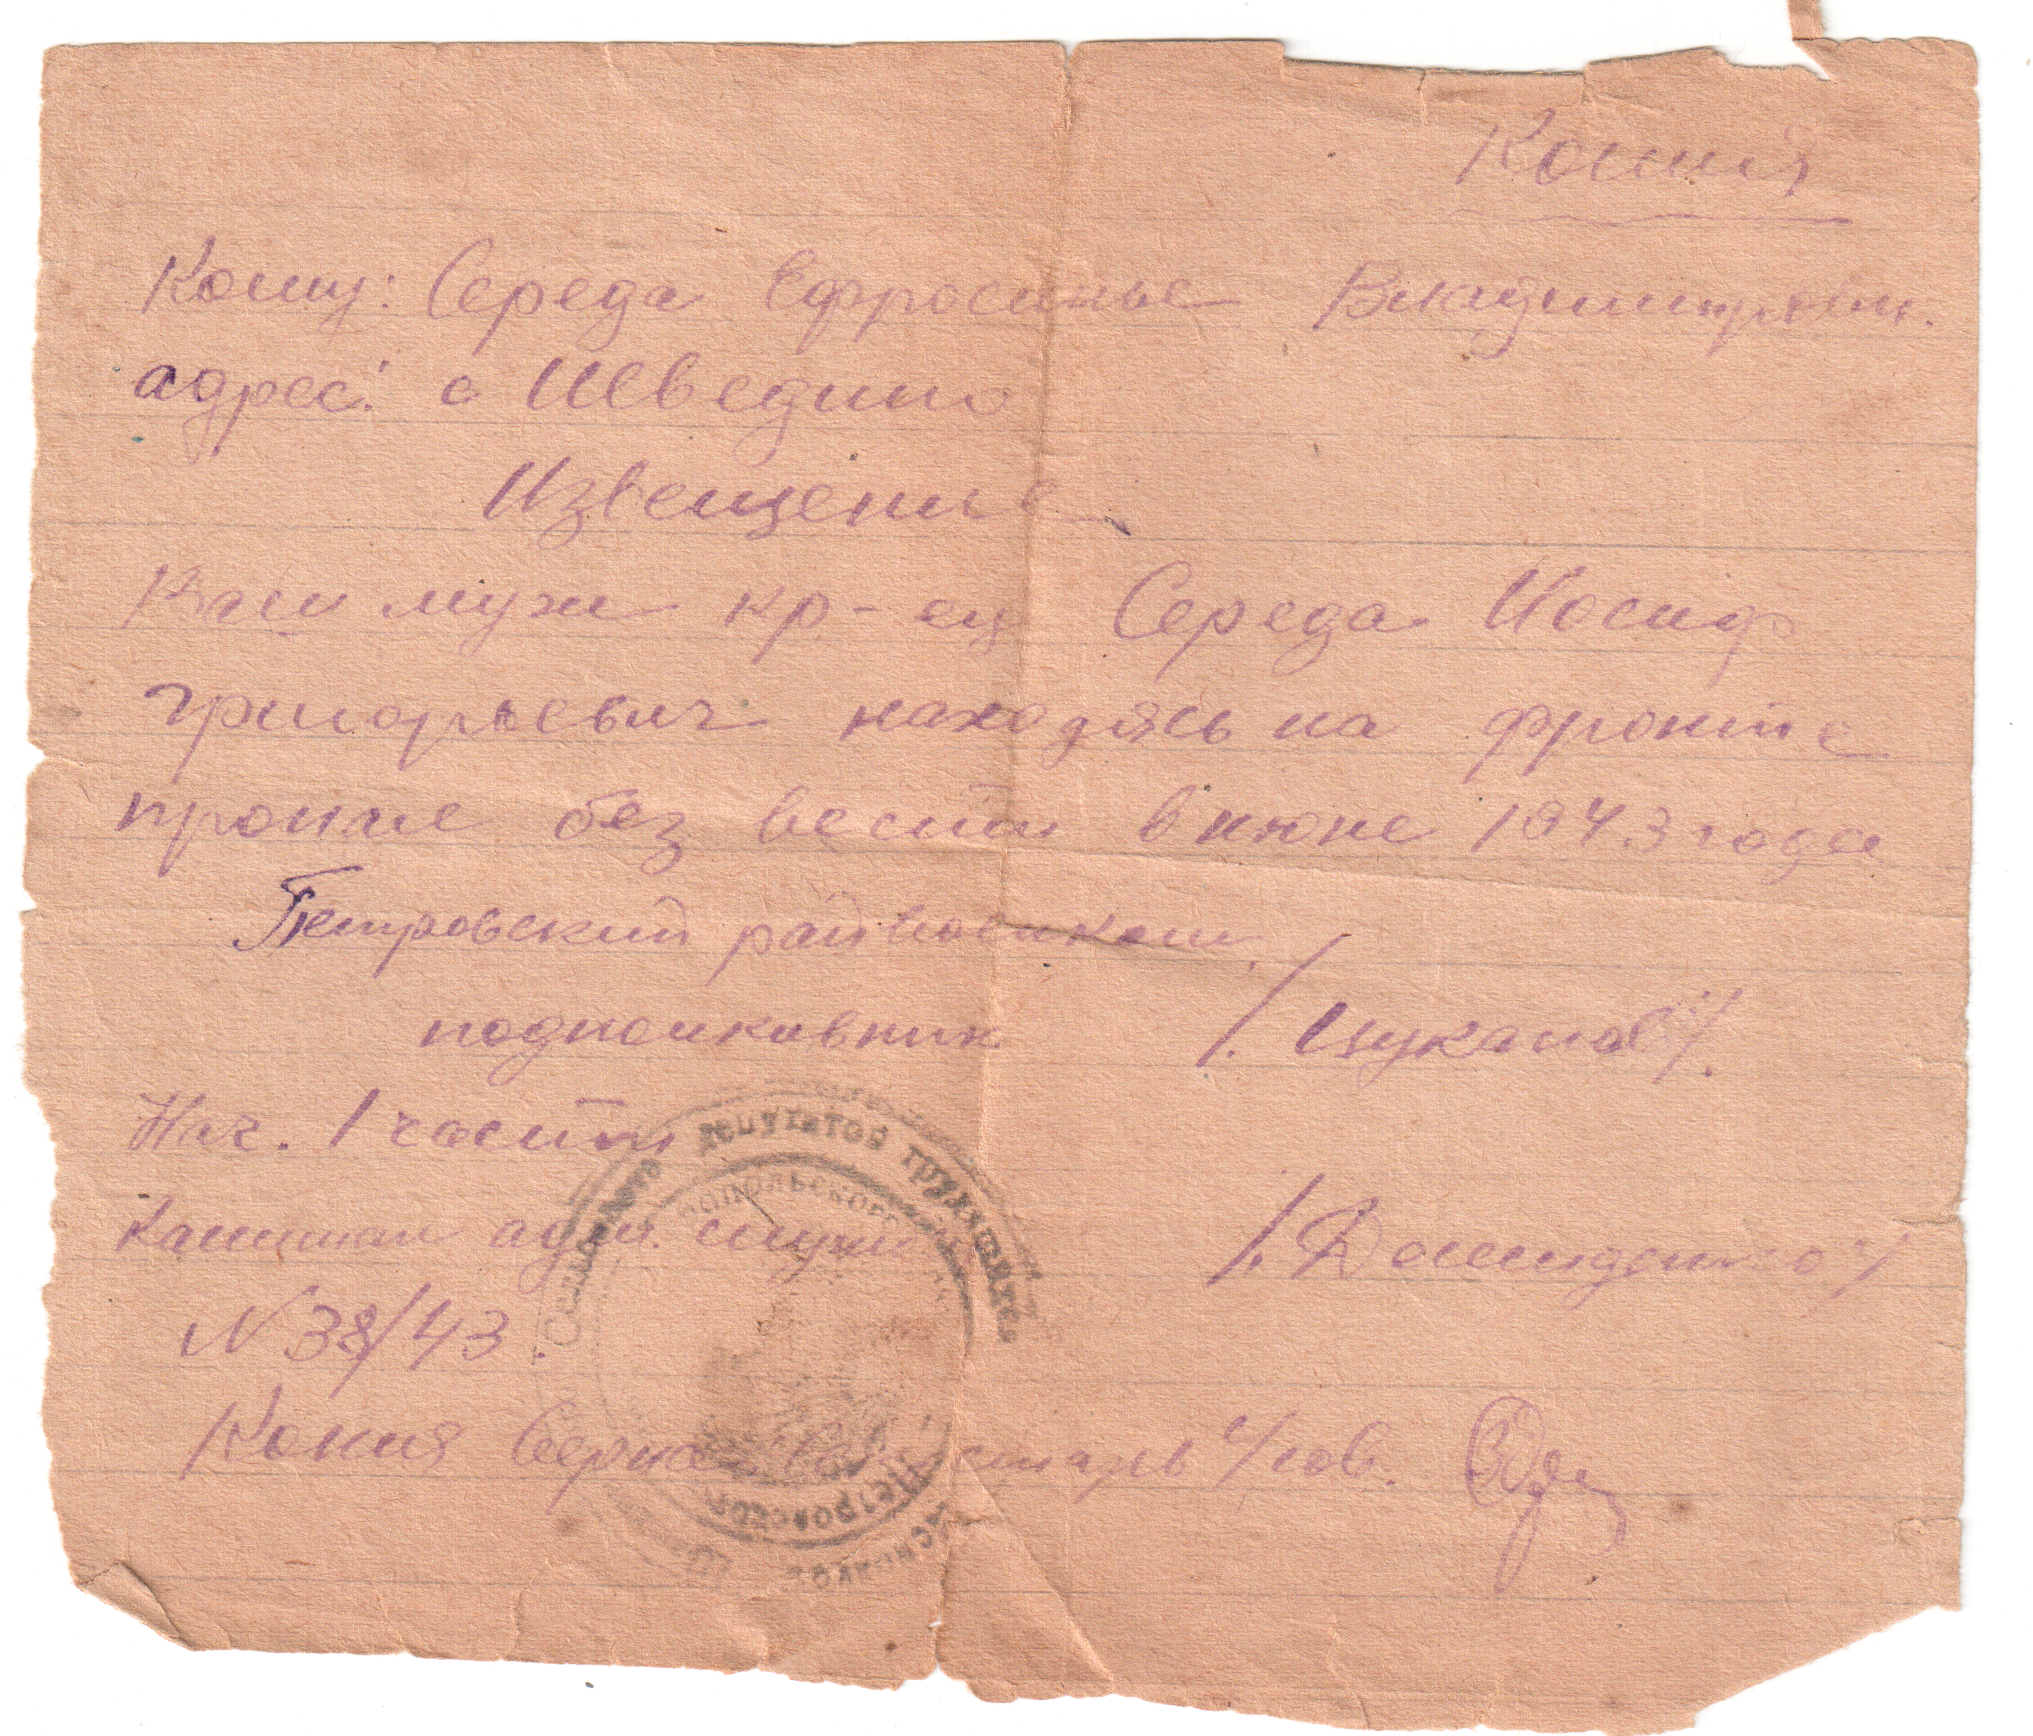 Копия
Кому: Середа Ефросинье Владимировн.
адрес: с Шведино
Извещение
Ваш муж кр-ец Середа Иосиф
григорьевич находясь на фронте
пропал без вести в июне 1943 года
Петровский райвоенком
подполковник /. Цуканов /.
Нач. 1 части
Капитан адм. служб /. Долиденко /
N 38/43.
Копия Верна: Секретарь
Сельского депутатов трудящихся
Петровского